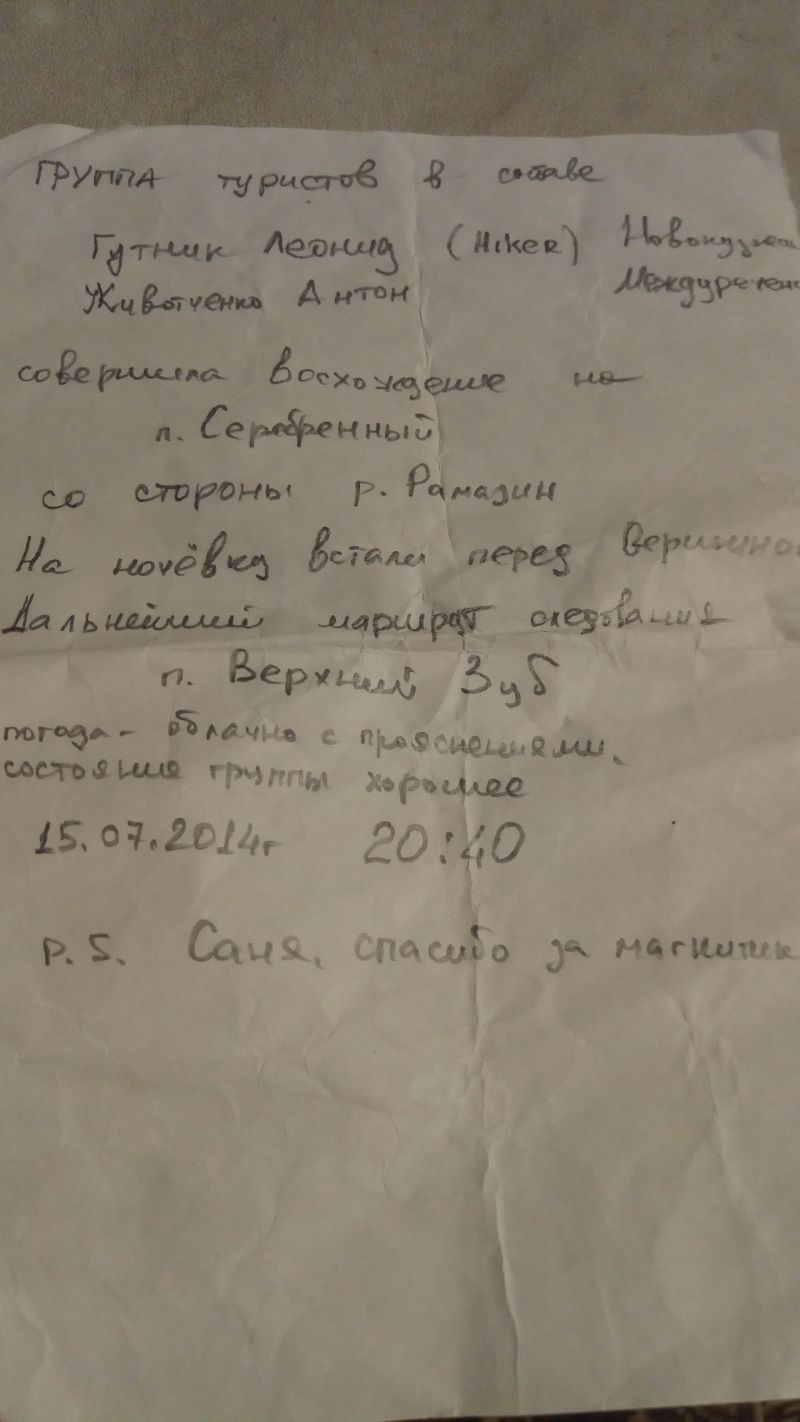 ГРУППА туристов в составе
Гутник Леонид (Hiker) Новокузнец
Животченко Антон Междуречен
совершила восхождение на
п. Серебренный
со стороны р. Рамазин
На ночёвку встали перед Вершиной
Дальнейший маршрут следования
п. Верхний Зуб
погода - облачно с прояснениями,
состояние группы хорошее
15.07.2014г 20:40
P.S. Саня, спасибо за магнитик